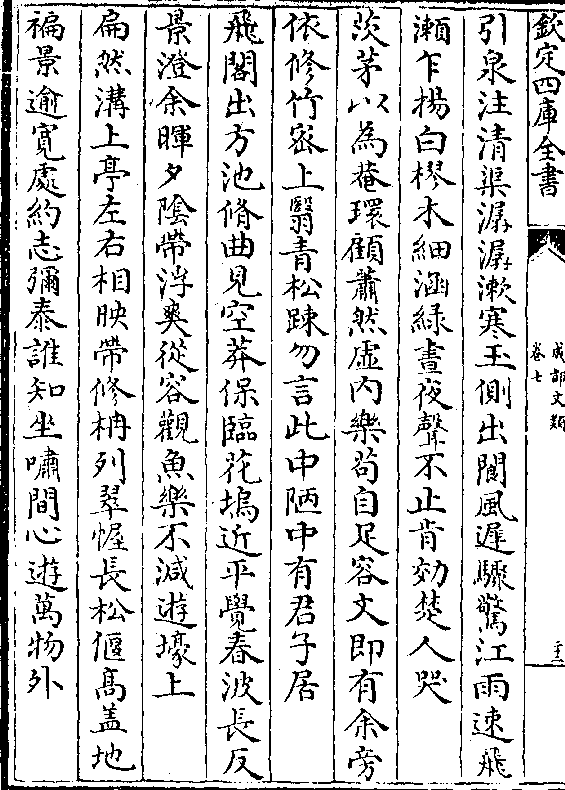 欽定四庫全書
成都文類
卷七
引泉注清渠潺潺漱寒玉側出閬風遲驟驚江雨速飛
瀬乍揚白樛木細涵綠晝夜聲不止肯効楚人哭
茨茅以為菴環顧蕭然虛内樂苟自足容丈即有余旁
依修竹宻上翳青松踈勿言此中陋中有君子居
飛閣出方池脩曲見空莽保臨花塢近平覺春波長反
景澄余暉夕陰帶浮爽從容觀魚樂不減遊壕上
扁然溝上亭左右相映帶修枏列翠幄長松偃髙盖地
褊景逾寛處約志彌泰誰知坐嘯間心遊萬物外